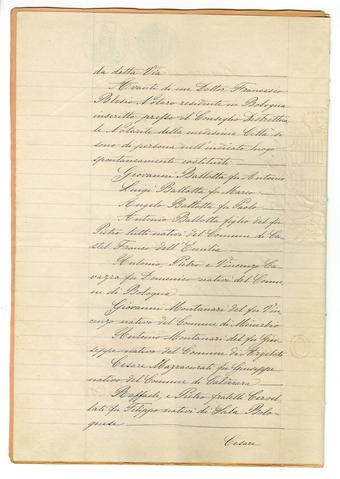 da detta Via
Avanti di me Dottor Francesco
Notaro residente in Bologna
inscritto presso il Consiglio Distrettua
le Notarile della medesima Città si
sono di persona nell'indicato luogo
spontaneamente costituiti
Giovanni Ballotta fu Antonio
Luigi Ballotta fu Marco
Angelo Ballotta fu Paolo
Antonio Ballotta figlio del fu
Pietro tutti nativi del Comune di Ca
stel Franco dell'Emilia
Antonio, Pietro e Vincenzo Ca
vazza fu Domenico nativi del Comu
ne di Bologna
Giovanni Montanari del fu Vin
cenzo nativo del Comune di Minerbio
Antonio Montanari del fu Giu
seppe nativo del Comune di Argelato
Cesare fu Giuseppe
nativo del Comune di
Raffaele, e Pietro fratelli Cervel
lati fu Filippo nativi di Sala Bolo
gnese
Cesare